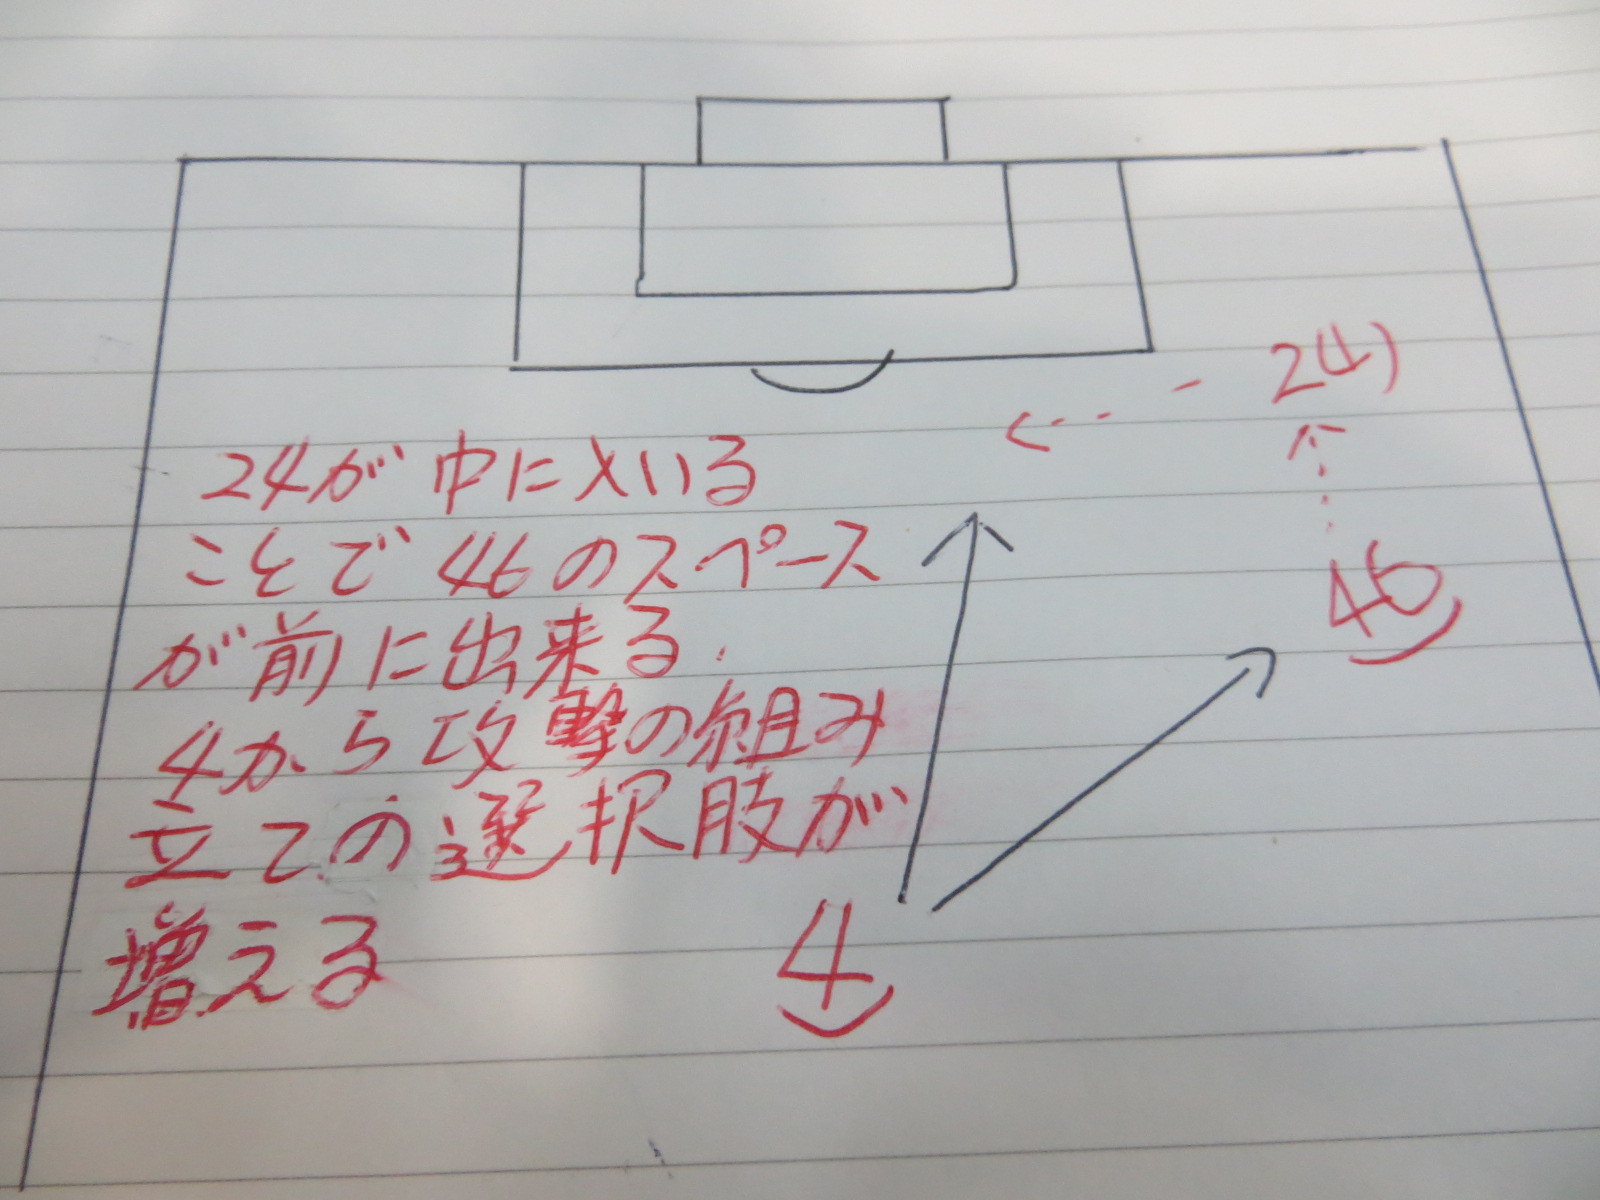 24
24が中に入いる
ことで46のスペース
46
が前に出来る.
4から攻撃の組み
立ての選択肢が
増える
4